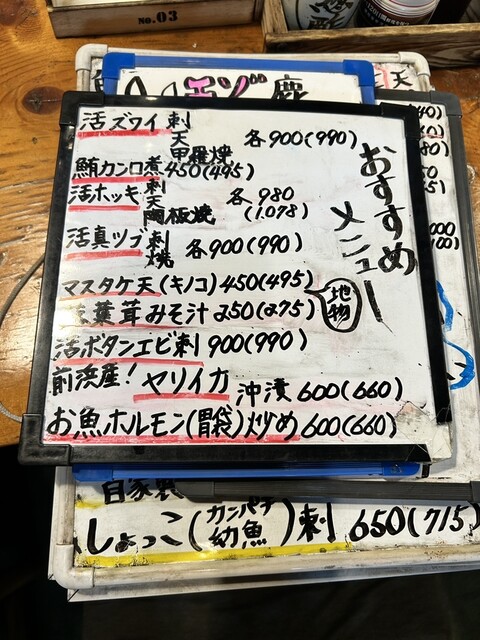 No.03
エゾ鹿
天
おすすめ
メニュー
活ズワイ 刺
天
甲羅焼 各900(990)
鮪カンロ煮 450(495)
活ホッキ 刺
天
陶板焼 各980
(1.078)
活真ツブ 刺
焼 各900(990)
マスタケ天(キノコ)450(495)
葉茸みそ汁 250(275)
地物
活ボタンエビ刺 900(990)
前浜産!ヤリイカ 沖漬 600(660)
お魚ホルモン(胃袋)炒め 600(660)
自家製
しょっこ(カンパチ
幼魚)刺 650(715)